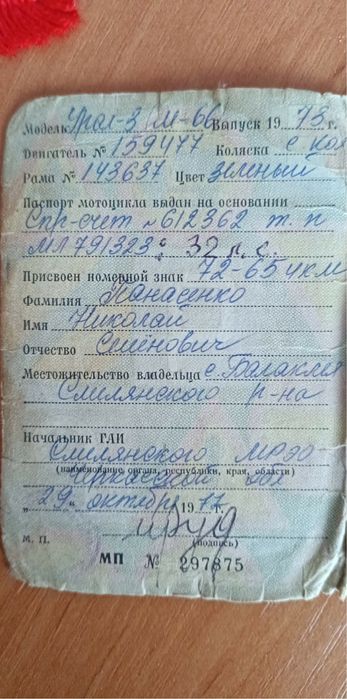 Модель Урал-3 М-66 Выпуск 1973 г.
Двигатель № 159477 Коляска с кол
Рама № 143637 Цвет зеленый
Паспорт мотоцикла выдан на основании
Спр-счет № 612362 т. п
МЛ 791323 32 л. с.
Присвоен номерной знак 72-65 чкм
Фамилия Панасенко
Имя Николай
Отчество Семёнович
Местожительство владельца с. Балаклея
Смилянского р-на
Начальник ГАИ
Смилянского МРЭО
(наименование органа, республики, края, области)
Черкасской обл
„29„ октября 1977 г.
(подпись)
М. П.
МП № 297875